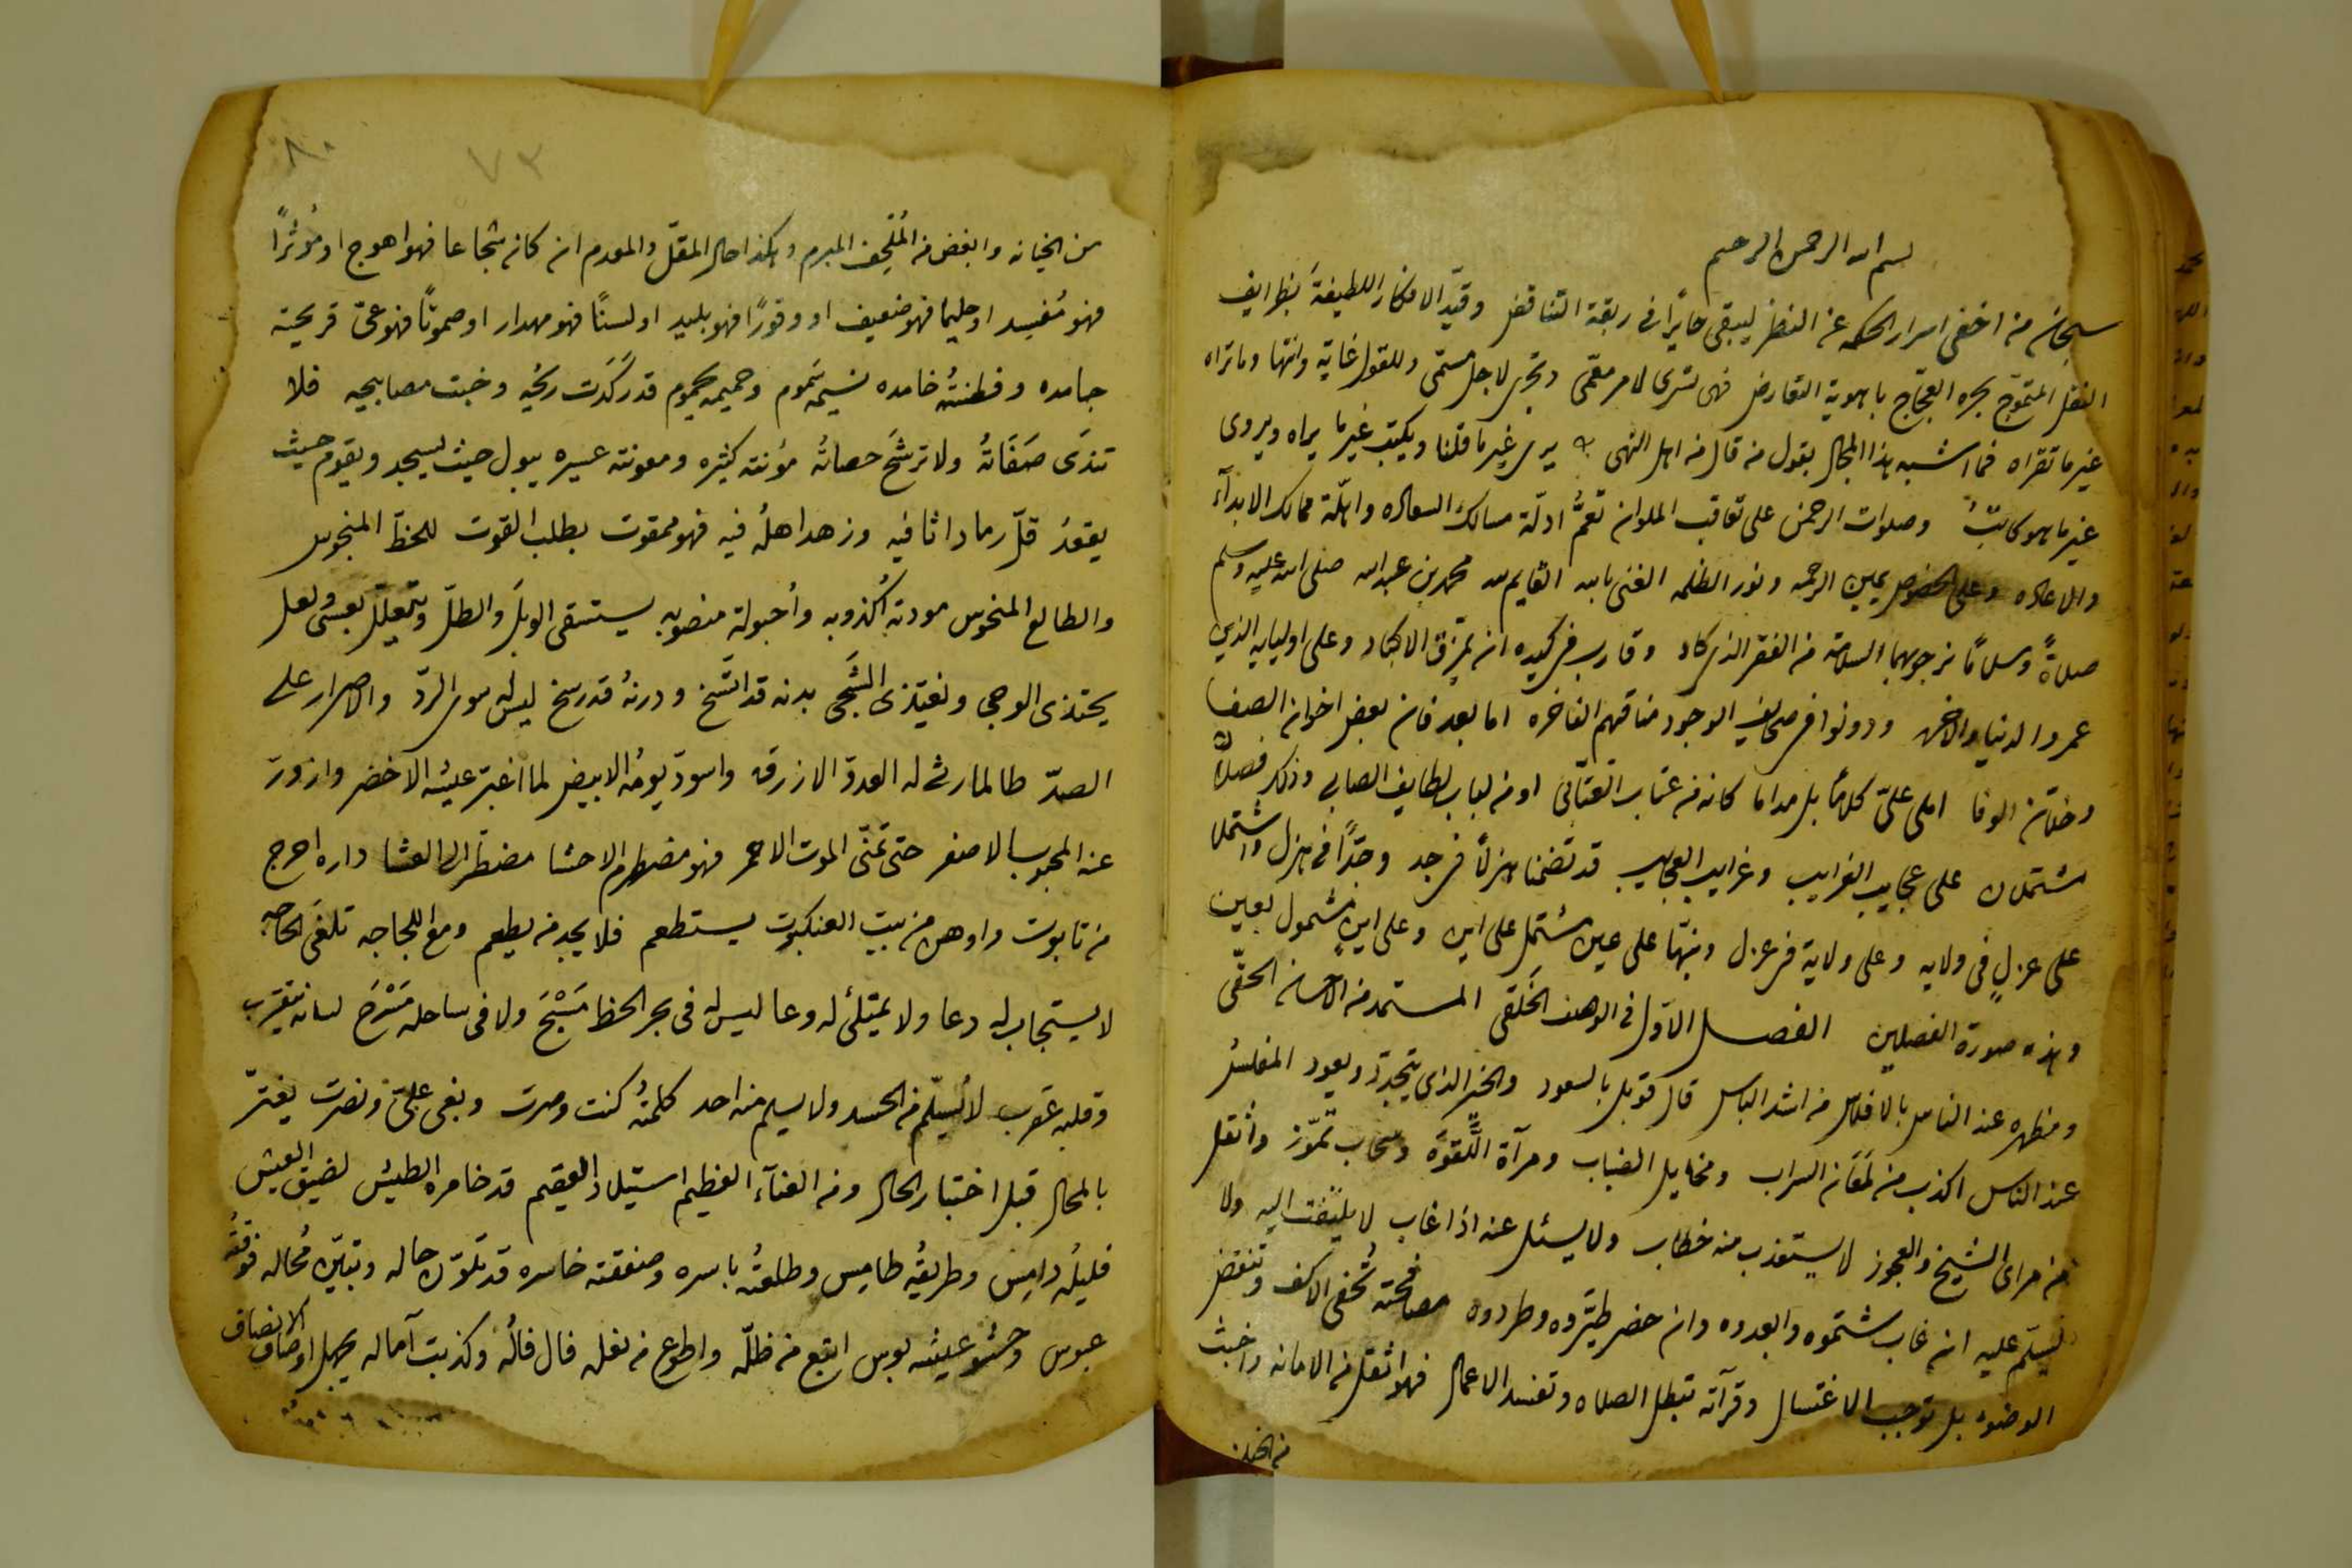 بسم الله الرحمن الرحيم
سبحان من اخفى اسرار الحكمه عن النظر ليبقى حايرًا في ربقة التناقض وقيّد الافكار اللطيفة بظرايف
النقل المتموّج بحره العجّاج باهوية التعارض فهى تسرى لامر معمّى وتجرى لاجل مسمّى وللقول غاية وانتها وما تراه
غير ما تقراه فما اشبه هذا المجال بقول من قال من اهل النهى يرى غير ما قلنا ويكتب غير ما يراه ويروى
غير ما هو كاتبُ وصلوات الرحمن على تعاقب الملوان تعمُّ ادلّة مسالك السعاده واهلّة ممالك الابدآء
والاعاده وعلى الخصوص يمين الرحمه ونور الظلمه الغنى بالله القايم لله محمد بن عبد الله صلى الله عليه وسلم
صلاةً وسلامًا نرجو بهما السلامة من الفقر الذى كاد وقارب في كيده ان يمزّق الاكباد وعلى اوليايه الذين
عمروا الدنيا والاخره ودونوا في صحايف الوجود مناقبهم الفاخره اما بعد فان بعض اخوان الصفا
وخلّان الوفا املى علىّ كلامًا بل مداما كانه من عتاب العتّابى او من لباب لطايف الصابى وذكر فصلاً
مشتملان على عجايب الغرايب وغرايب العجايب قد تضمنا هزلاً في جد وجدًّا في هزل واشتملا
على عزلٍ في ولايه وعلى ولاية في عزل ونبّها على عين مشتمل على اين وعلى اينٍ مشمول بعين
وهذه صورة الفصلين الفصل الاوّل في الوهن الخَلقى المستمد من الاحسان الحقّى
ومظهره عند الناس بالافلاس من اشد الباس قال قوبل بالسعود والخير الذى يتجدّد ويعود المفلسُ
عند الناس اكذب من لمَعَان السراب ومخايل الضباب ومرآة اللَّقوَه وسحاب تمّوز واثقل
من مراى الشيخ والعجوز لا يستعذب منه خطاب ولا يسئل عنه اذا غاب لا يلتفت اليه ولا
يسلّم عليه ان غاب شتموه وابعدوه وان حضر طيّروه وطردوه مصافحته تُحفى الاكف وتنقض
الوضوء بل توجب الاغتسال وقرآته تبطل الصلاه وتفسد الاعمال فهو اثقل من الامانه واخبث
من الخيانه
٧٣
٨٠
من الخيانه وابغض من المُلحِف المبرم وهكذا حال المقلّ والمعدم ان كان شجاعا فهو اهوج او مُوثرًا
فهو مُفسِد او حليما فهو ضعيف او وقورًا فهو بليد او لسنًا فهو مهدار او صموتًا فهو عىّ قريحته
جامده وفطنتهُ خامده نسيمه سَموم وحميمه يحموم قد ركَدَت ريحُه وخبت مصابيحه فلا
تندَى صَفَاتهُ ولا ترشَح حصاتهُ مؤنته كثيره ومعونته عسيره يبول حيث يسجد ويقوم حيث
يقعدُ قلّ رمادا ثافيه وزهد اهلُه فيه فهو ممقوت بطلب القوت للحظّ المنحوس
والطالع المنحوس مودته اُكذوبه واُحبولة منصوبه يستسقى الوبل والطلّ ويتعلّل بعسى ولعل
يحتذى الوجى ويغتذى الشَّجى بدنه قد اتّسخ ودرنهُ قد رسخ ليس له سوى الردّ والاصرار على
الصدّ طالما رثى له العدوّ الازرق واسودّ يومُه الابيض لما اغبرّ عيشه الاخضر وازورّ
عنه المحبوب الاصفر حتى تمنّى الموت الاحمر فهو مضطرم الاحشا مضطر الى العشا داره احرج
من تابوت واوهن من بيت العنكبوت يستطعم فلا يجد من يطعم ومع اللجاجه تلغَى الحاجه
لا يستجاب له دعا ولا يمتلئ له وعا ليس له في بحر الحظ مَسْبَح ولا في ساحله مَسْرَح لسانه يتقرب
وقلبه عقرب لا يُسلّم من الحسد ولا يسلم منه احد كلمتهُ كنت وصرت وبغى علىّ ونصرت يغترّ
بالمحال قبل اختبار الحال ومن العنآء العظيم استيلاد العقيم قد خامره الطيش لضيق العيش
فليلُه دامِس وطريقُه طامِس وطلعتُه باسره وصفقته خاسره قد تلوّن حاله وتبيّن مُحاله فوقتُه
عبوس وحشو عيشه بوس اتبع من ظلّه واطوع من نعله فال فالُه وكذبت آماله يجهل اوصاف الانصاف